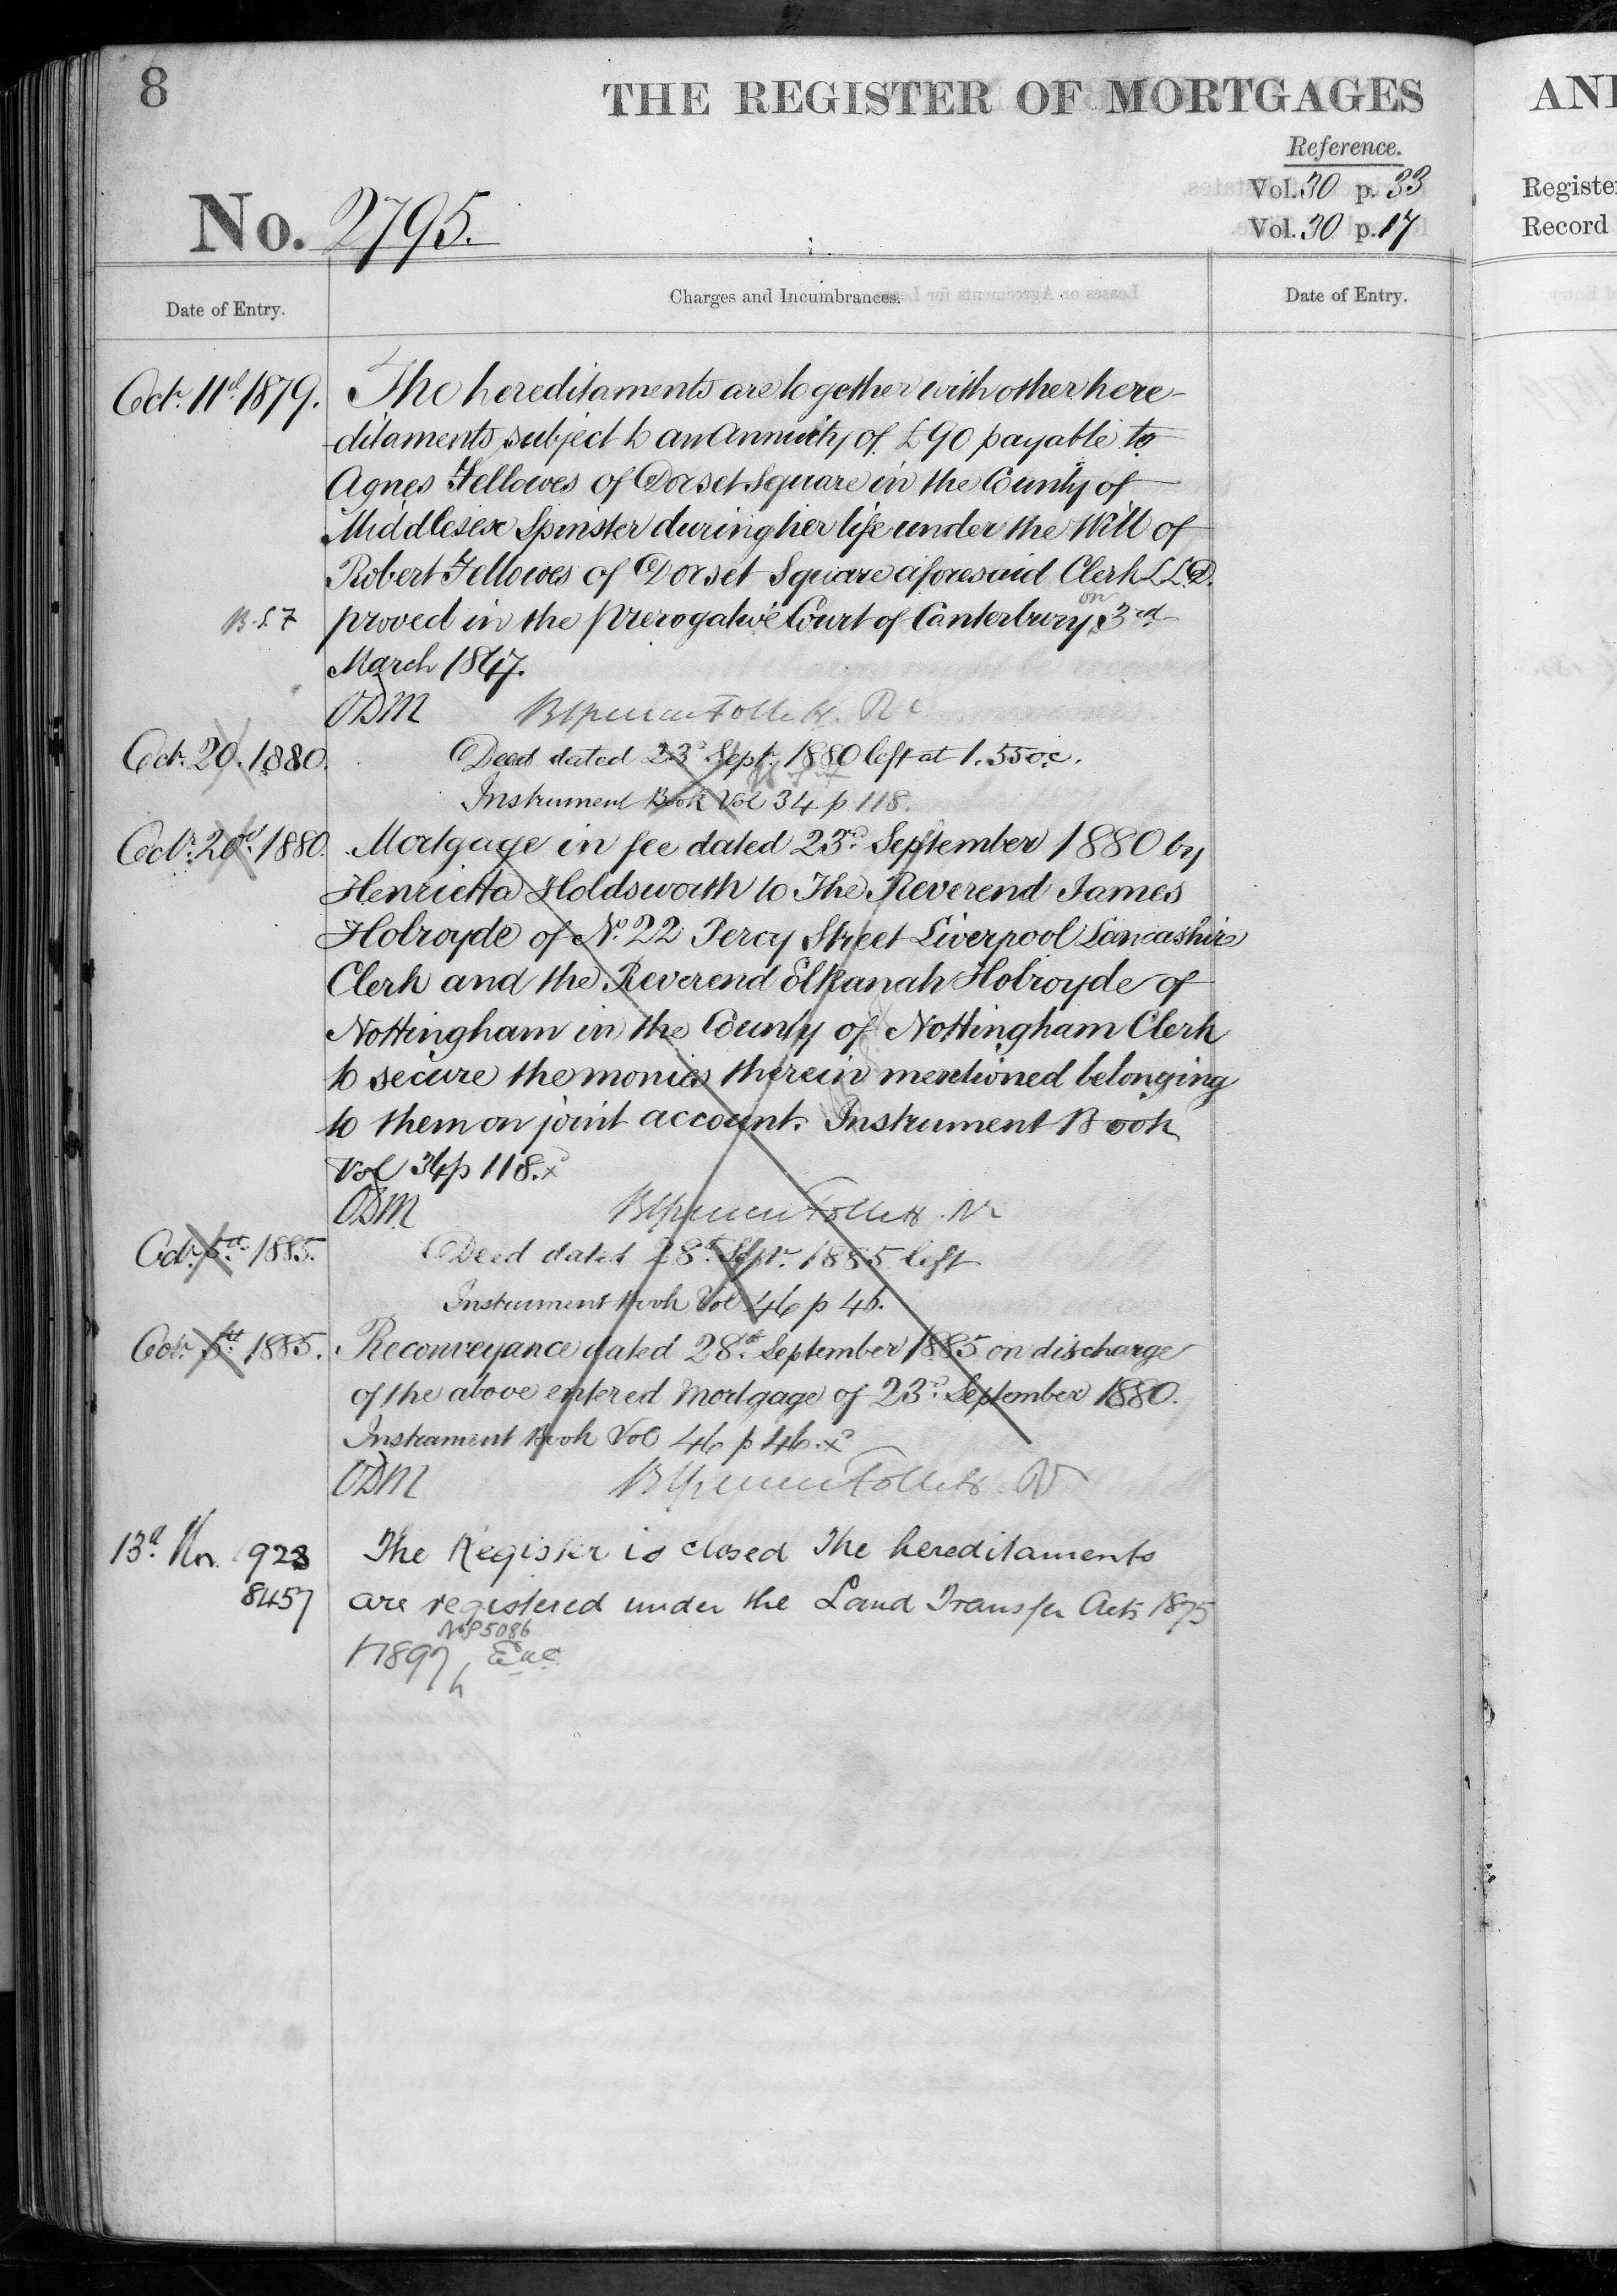 8
THE REGISTER OF MORTGAGES
Reference.
Vol. 30 p. 33
Vol. 30 p. 17
No. 2795.
Date of Entry.
Charges and Incumbrances.
Date of Entry.
Octr. 11th 1879. The hereditaments are together with other here-
ditaments subject to an Annuity of £90 payable to
Agnes Fellowes of Dorset Square in the County of
Middlesex Spinster during her life under the Will of
Robert Fellowes of Dorset Square aforesaid Clerk LLD.
proved in the Prerogative Court of Canterbury on 3rd
March 1847.
ODM
Octr. 20. 1880. Deed dated 23d Septr. 1880 left at 1.55 oc.
Instrument Book Vol 34 p 118.
Octr. 20th 1880. Mortgage in fee dated 23d September 1880 by
Henrietta Holdsworth to The Reverend James
Holroyde of No. 22 Percy Street Liverpool Lancashire
Clerk and the Reverend Elkanah Holroyde of
Nottingham in the County of Nottingham Clerk
to secure the monies therein mentioned belonging
to them on joint account. Instrument Book
Vol 34 p 118.
ODM
Octr. 1885. Deed dated 28th Septr. 1885 left
Instrument Book Vol 46 p 46.
Octr. 1885. Reconveyance dated 28th September 1885 on discharge
of the above entered Mortgage of 23d September 1880.
Instrument Book Vol 46 p 46.
ODM
13th 1923 The Register is closed The hereditaments
8457 are registered under the Land Transfer Acts 1875
No P5086
1897
AND
Register
Record